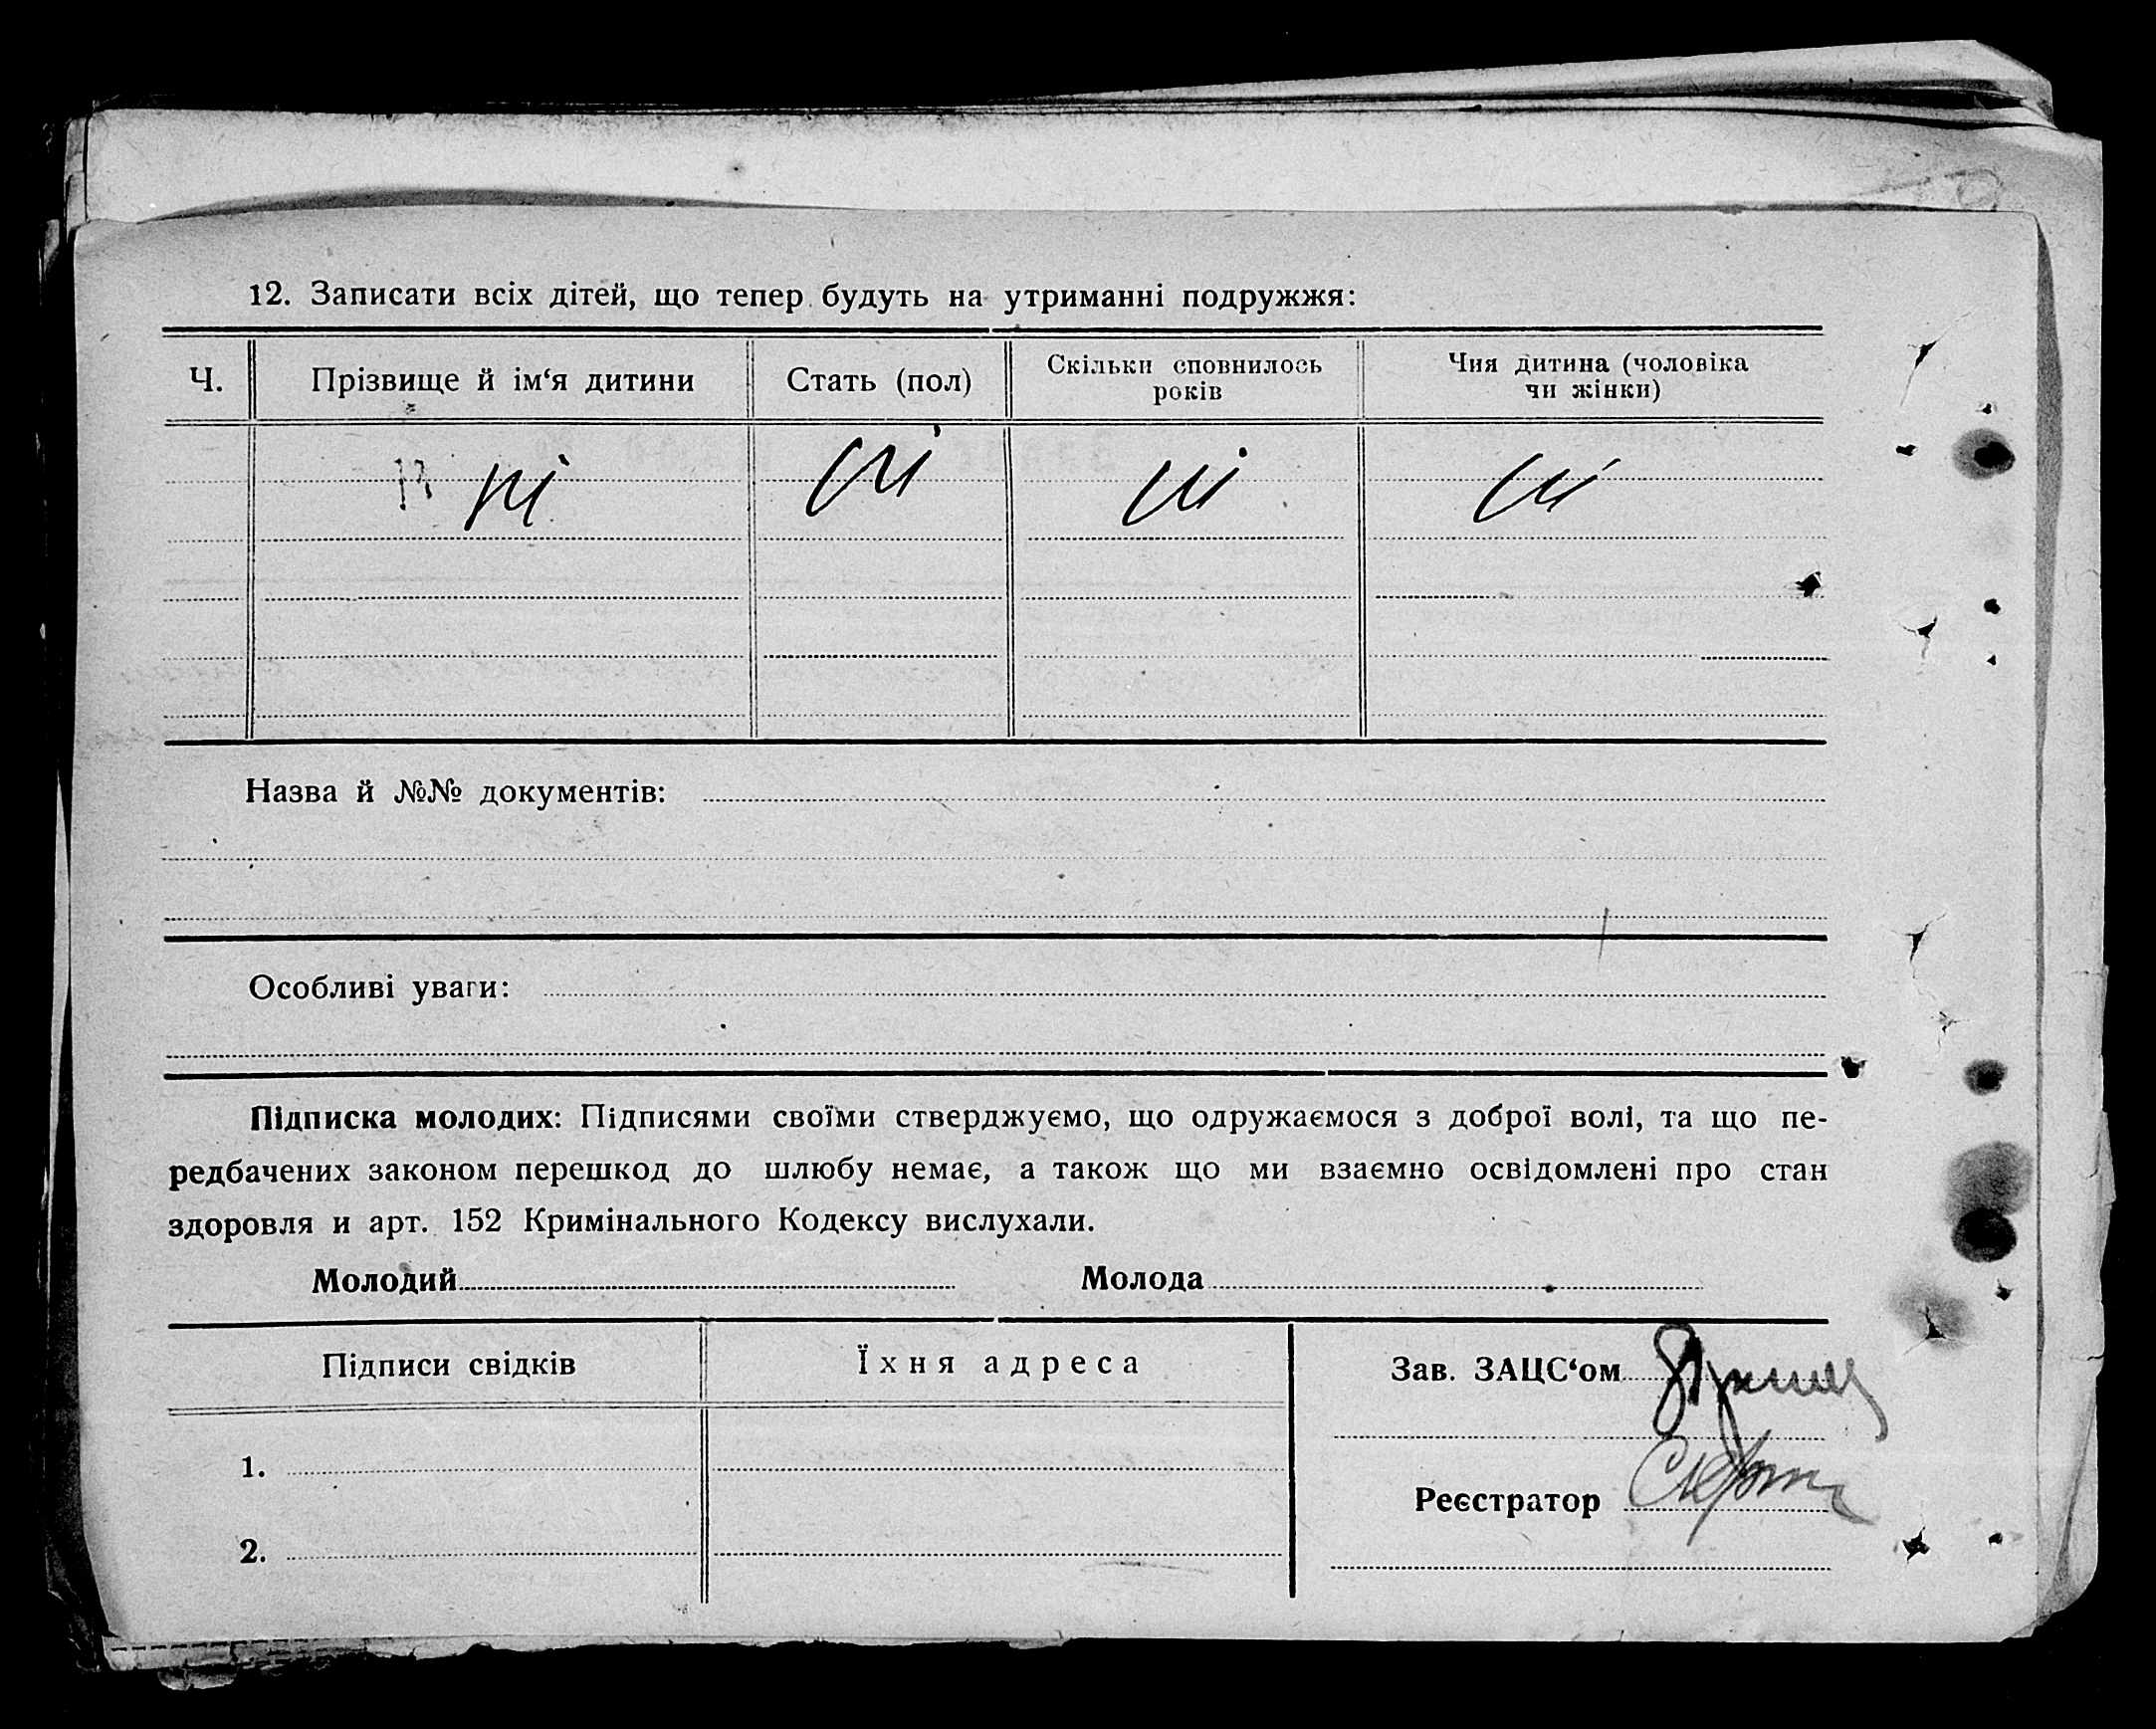 12. Записати всіх дітей, що тепер будуть на утриманні подружжя:
Ч.
Прізвище й ім‘я дитини
Стать (пол)
Скільки сповнилось
років
Чия дитина (чоловіка
чи жінки)
ні ні ні ні
Назва й №№ документів:
Особливі уваги:
Підписка молодих: Підписями своїми стверджуємо, що одружаємося з доброї волі, та що пе-
редбачених законом перешкод до шлюбу немає, а також що ми взаємно освідомлені про стан
здоровля и арт. 152 Кримінального Кодексу вислухали.
Молодий Молода
Підписи свідків
Їхня адреса
1.
2.
Зав. ЗАЦС‘ом
Реєстратор